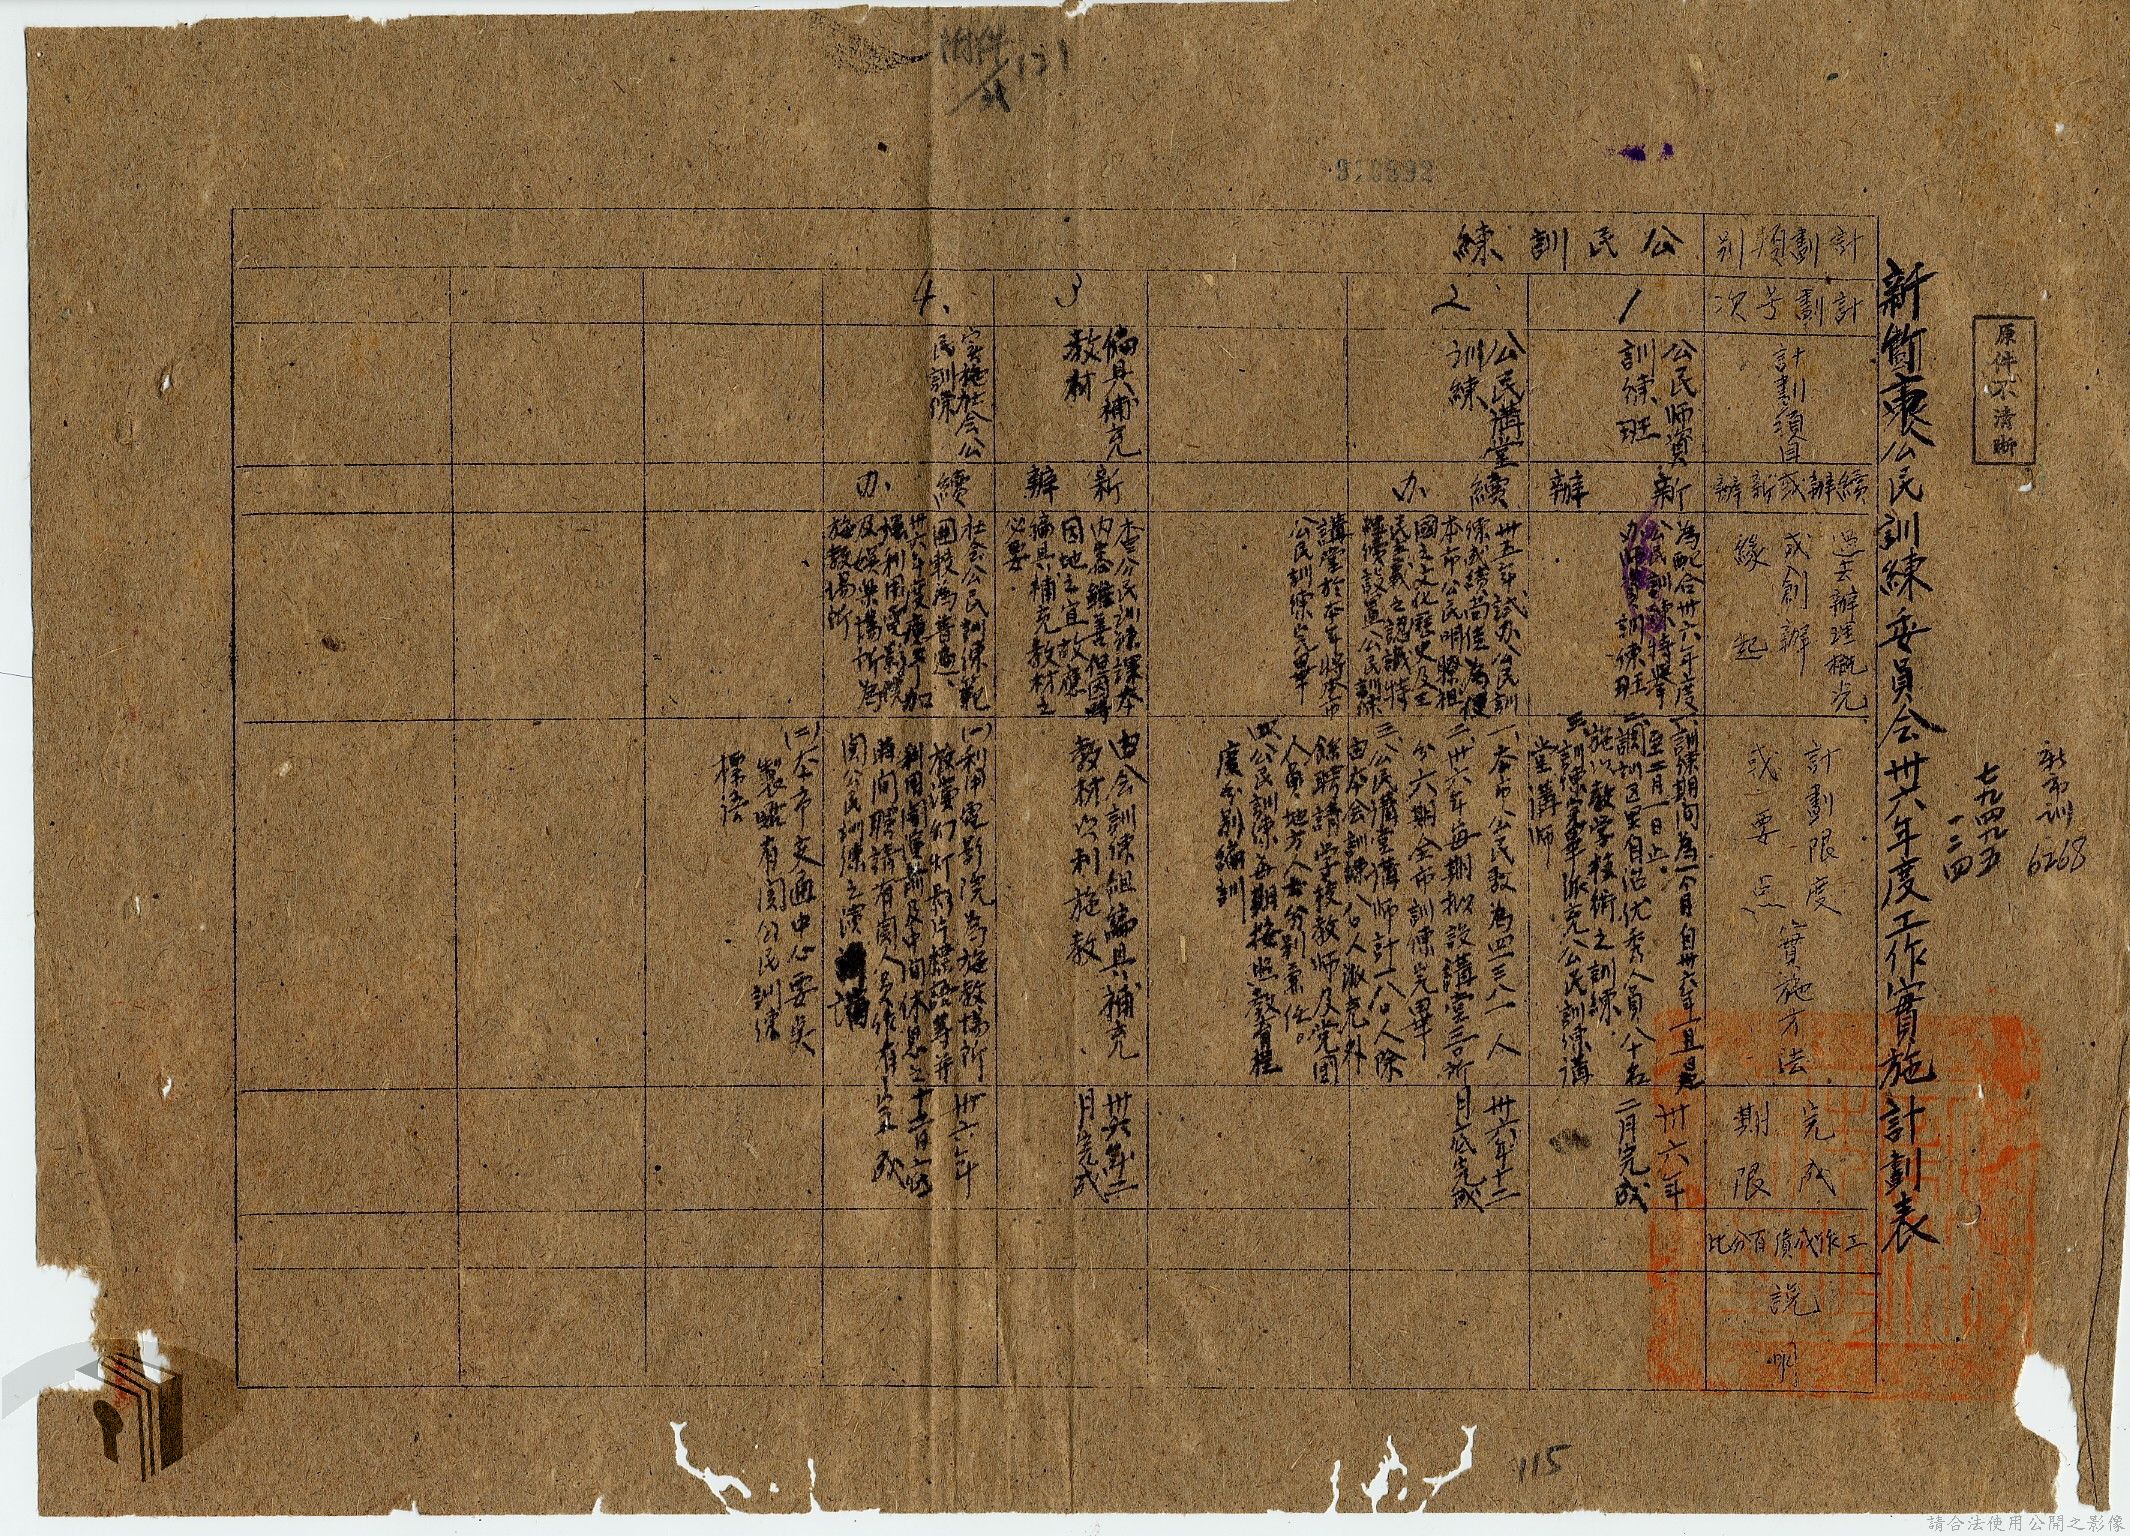 附件
131
新市訓
6268
原件不清晰
新竹市公民訓練委員会卅六年度工作實施計劃表
計劃類別
計劃号次
計劃須目
續辦或新辦
過去辦理概況
或創辦
緣起
計劃限度
實施方法
或要点
完成
期限
工作成績百分比
說明
公民訓練
1
公民师資
訓練班
新辦
為配合卅六年度
公民訓練特舉
办师資訓練班
一、訓練期间為一个月自卅六年一月一日起
至二月一日止
二、調训区里自治优秀人員八十名
施以教学技術之訓練
三、訓練完畢派充公民訓練講
堂講师
卅六年
二月完成
2
公民講堂
訓練
續办
卅五年試办公民訓
練成績尚佳為使
本市公民明瞭祖
國之文化歷史及三
民主義之認識特
継續設置公民訓練
講堂於本年將本市
公民訓練完畢
一、本市公民数為四三八一人
二、卅六年每期拟設講堂三〇所
分六期全市訓練完畢
三、公民講堂講师計一八〇人除
由本会訓練八〇人派充外
餘聘請学校教师及党團
人員地方人士分别兼任。
四、公民訓練每期按照教育程
度分别編訓
卅六年十二
月底完成
3
編具補充
教材
新辦
本会公民訓練課本
内容雖善但因時
因地之宜故應
編具補充教材之
必要
由会訓練組編具補充
教材以利施教
卅六年二
月完成
4、
实施社会公
民訓練
續办
社会公民訓練範
圍較為普遍、
卅六年度應予加
強利用電影院
及娛楽場所為
施教場所
(一)利用電影院為施教場所
放演幻灯影片標語等并
利用開演前及中间休息之
時间聘請有関人員作有
関公民訓練之演講
(二)本市交通中心要点
製貼有関公民訓練
標語
卅六年
十二月底
完成
115
請合法使用公開之影像